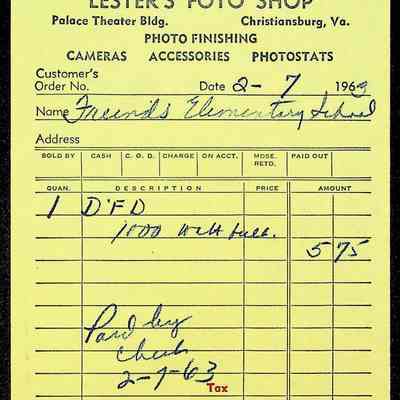 LESTER'S FOTO SHOP
Palace Theater Bldg. Christiansburg, Va.
PHOTO FINISHING
CAMERAS ACCESSORIES PHOTOSTATS
Customer's
Order No. Date 2-7 1963
Name Friends Elementary School
Address
SOLD BY CASH C. O. D. CHARGE ON ACCT. MDSE. RETD. PAID OUT
QUAN. DESCRIPTION PRICE AMOUNT
1 DFD
1000 Watt bulb. 
5 75
Paid by
check
2-7-63
Tax